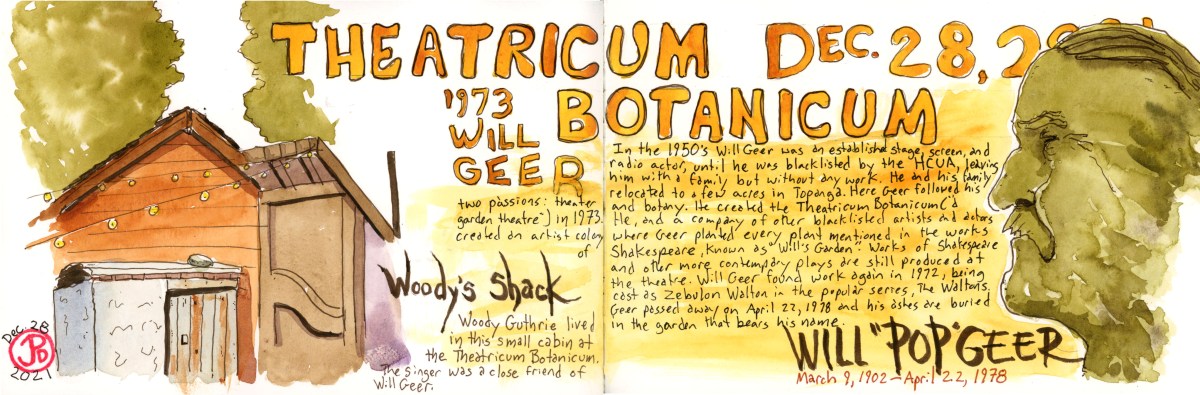 THEATRICUM
BOTANICUM
DEC. 28, 2
1973
WILL
GEER
In the 1950's Will Geer was an established stage, screen, and
radio actor, until he was blacklisted by the HCUA, leaving
him with a family but without any work. He and his family
relocated to a few acres in Topanga. Here Geer followed his
two passions: theater and botany. He created the Theatricum Botanicum ("a
garden theatre") in 1973. He, and a company of other blacklisted artists and actors
created an artist colony where Geer planted every plant mentioned in the works
of Shakespeare, known as "Will's Garden". Works of Shakespeare
and other more contemplary plays are still produced at
the theatre. Will Geer found work again in 1972, being
cast as Zebulon Walton in the popular series, The Waltons.
Geer passed away on April 22, 1978 and his ashes are buried
in the garden that bears his name.
Woody's Shack
Woody Guthrie lived
in this small cabin at
the Theatricum Botanicum.
The singer was a close friend of
Will Geer.
WILL "POP" GEER
March 9, 1902 - April 22, 1978
Dec. 28
JPD
2021